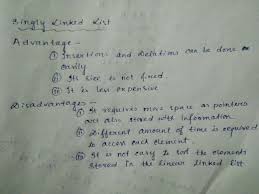 Singly Linked List
Advantage -
(i) Insertions and Deletions can be done
easily
(ii) Its size is not fixed.
(iii) It is less expensive
Disadvantages -
(i) It requires more space as pointers
are also stored with information
(ii) Different amount of time is required
to access each element.
(iii) It is not easy to sort the elements
stored in the linear linked list